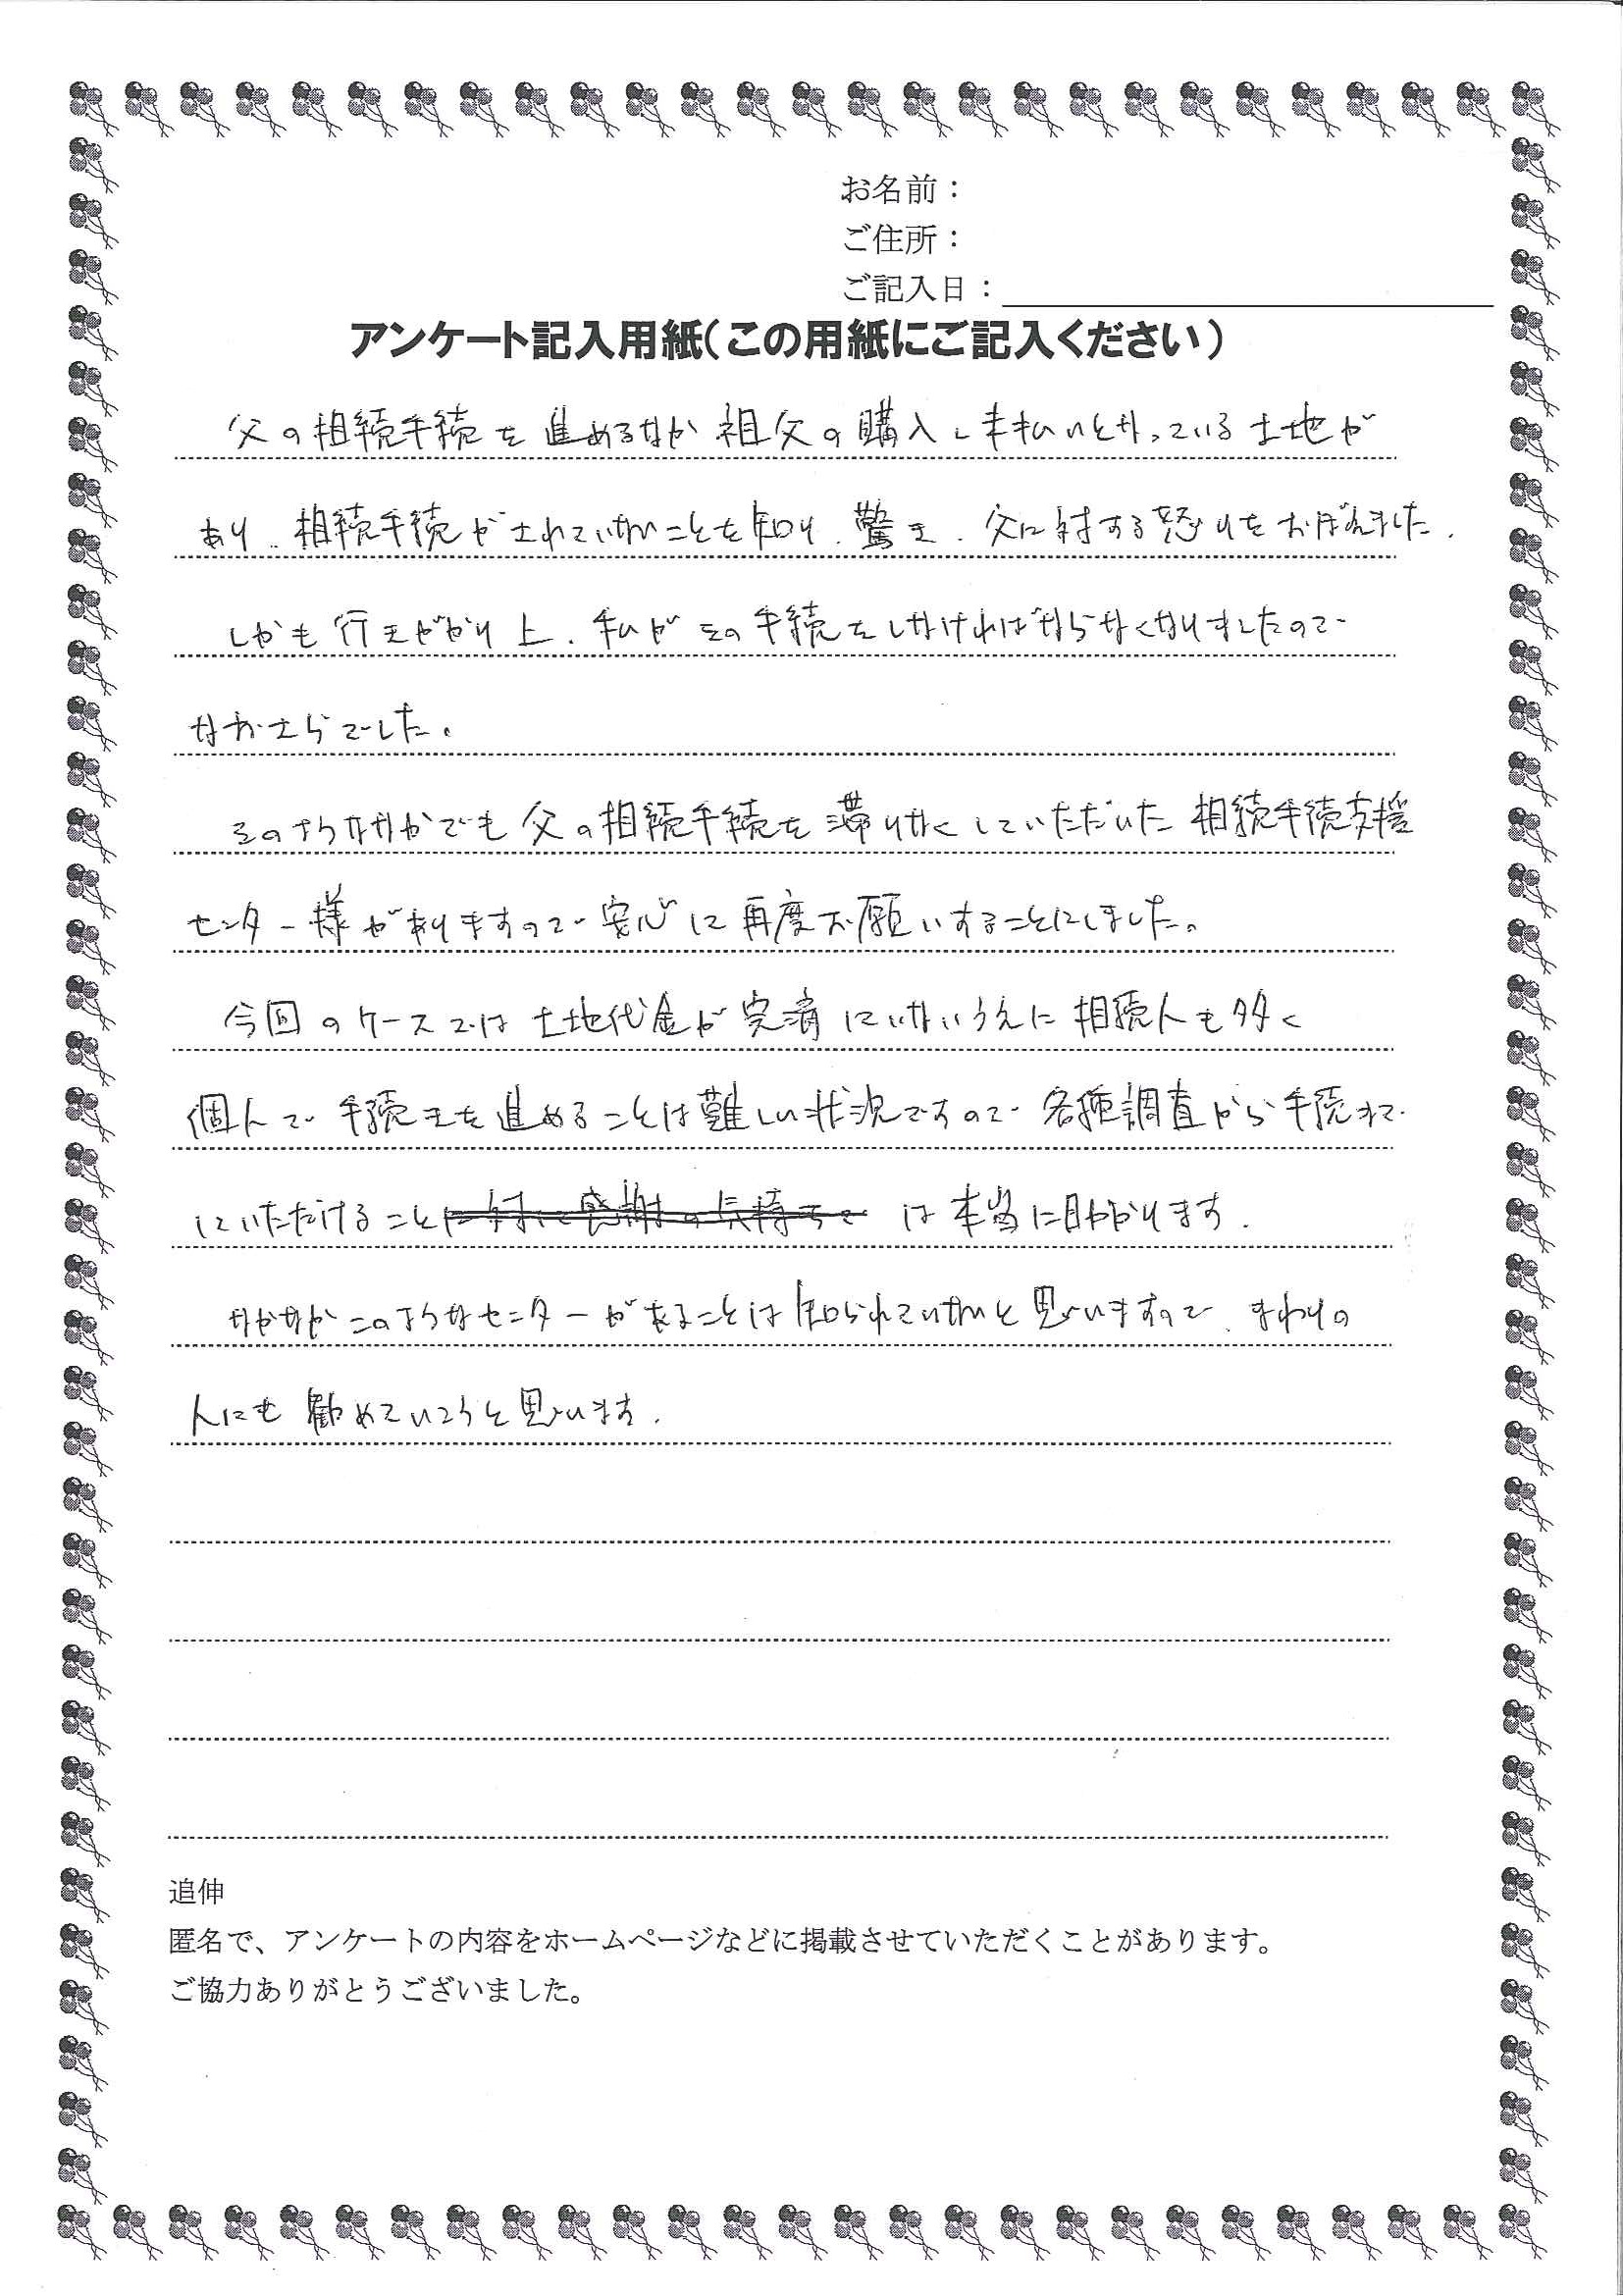 お名前：
ご住所：
ご記入日：
アンケート記入用紙（この用紙にご記入ください）
父の相続手続を進めるなか祖父の購入し未払いとなっている土地が
あり、相続手続がされていないことを知り、驚き、父に対する怒りをおぼえました。
しかも行きがかり上、私がその手続をしなければならなくなりましたので
なおさらでした。
そのようななかでも父の相続手続を滞りなくしていただいた相続手続支援
センター様がありますので安心に再度お願いすることにしました。
今回のケースでは土地代金が完済していないうえに相続人も多く
個人で手続きを進めることは難しい状況ですので各種調査から手続まで
していただけることに対して感謝の気持ちで は本当に助かります。
なかなかこのようなセンターがあることは知られていないと思いますので、まわりの
人にも勧めていこうと思います。
追伸
匿名で、アンケートの内容をホームページなどに掲載させていただくことがあります。
ご協力ありがとうございました。